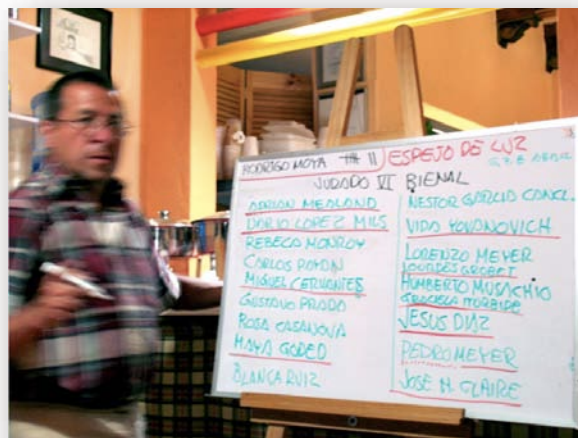 RODRIGO MOYA
ESPEJO DE LUZ
6, 7, 8 ABRIL
JURADO VI BIENAL
DARIO LOPEZ MILS
REBECA MONROY
CARLOS PAYAN
MIGUEL CERVANTES
GUSTAVO PRADO
ROSA CASANOVA
MAYA GODED
BLANCA RUIZ
NESTOR GARCIA CANCL.
VIDA YOVANOVICH
LORENZO MEYER
LOURDES GROBET
HUMBERTO MUSACHIO
GRACIELA ITURBIDE
JESUS DIAZ
PEDRO MEYER
JOSE H. CLAIRE